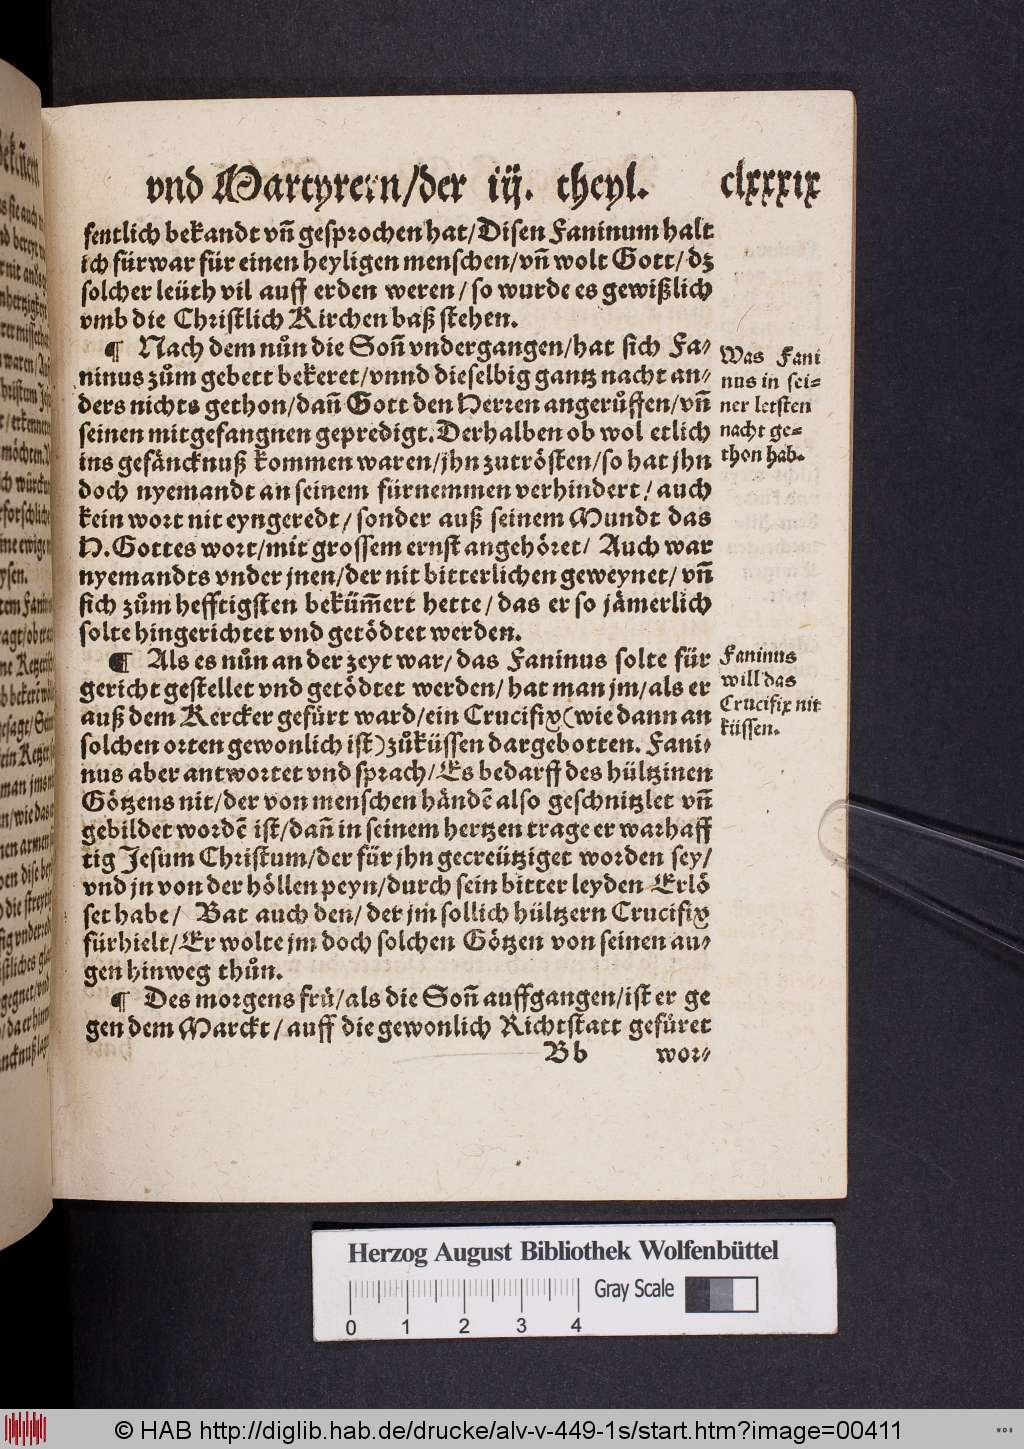 vnd Martyrern/der iij. theyl. clxxxix
fentlich bekandt vñ gesprochen hat/Disen Faninum halt
ich fürwar für einen heyligen menschen/vñ wolt Gott/dz
solcher leüth vil auff erden weren/so wurde es gewißlich
vmb die Christlich Kirchen baß stehen.
¶ Nach dem nůn die Soñ vndergangen/hat sich Fa-
ninus zům gebett bekeret/vnnd dieselbig gantz nacht an-
ders nichts gethon/dañ Gott den Herren angerůffen/vñ
seinen mitgefangnen gepredigt. Derhalben ob wol etlich
ins gefäncknuß kommen waren/jhn zutrösten/so hat jhn
doch nyemandt an seinem fürnemmen verhindert/auch
kein wort nit eyngeredt/sonder auß seinem Mundt das
H. Gottes wort/mit grossem ernst angehöret/Auch war
nyemandts vnder jnen/der nit bitterlichen geweynet/vñ
sich zům hefftigsten beküm̃ert hette/das er so jämerlich
solte hingerichtet vnd getödtet werden.
Was Fani
nus in sei-
ner letsten
nacht ge-
thon hab.
¶ Als es nůn an der zeyt war/das Faninus solte für
gericht gestellet vnd getödtet werden/hat man jm/als er
auß dem Kercker gefürt ward/ein Crucifix(wie dann an
solchen orten gewonlich ist)zůküssen dargebotten. Fani-
nus aber antwortet vnd sprach/Es bedarff des hültzinen
Götzens nit/der von menschen händẽ also geschnitzlet vñ
gebildet wordẽ ist/dañ in seinem hertzen trage er warhaff
tig Jesum Christum/der für jhn gecreütziget worden sey/
vnd jn von der höllen peyn/durch sein bitter leyden Erlö
set habe/ Bat auch den/der jm sollich hültzern Crucifix
fürhielt/Er wolte jm doch solchen Götzen von seinen au-
gen hinweg thůn.
Faninus
will das
Crucifix nit
küssen.
¶ Des morgens frü/als die Soñ auffgangen/ist er ge
gen dem Marckt/auff die gewonlich Richtstatt gefüret
Bb wor-
Herzog August Bibliothek Wolfenbüttel
Gray Scale
0 1 2 3 4
© HAB http://diglib.hab.de/drucke/alv-v-449-1s/start.htm?image=00411